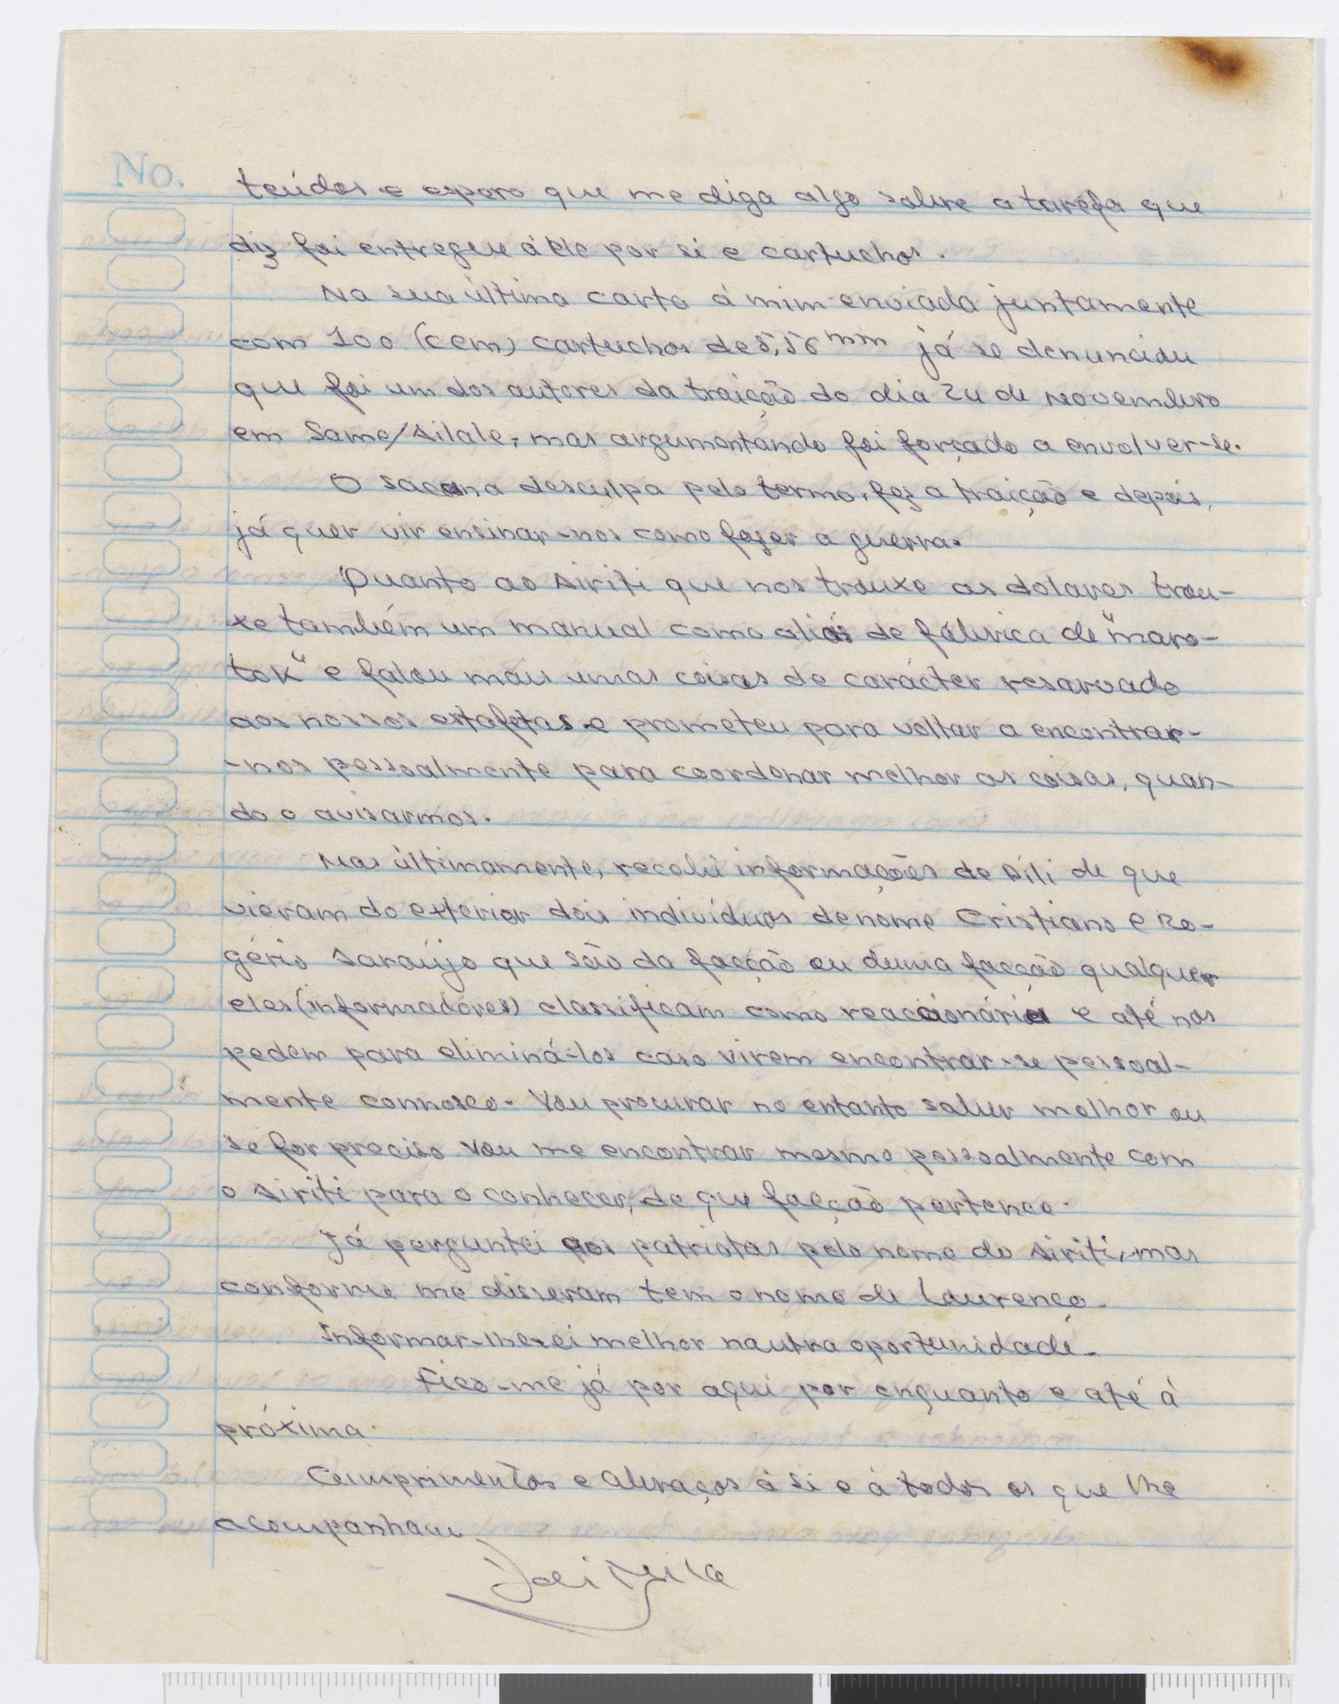 No.
teúdos e espero que me diga algo sobre a tarefa que
diz foi entregue á êle por si e cartuchos.
Na sua última carta á mim enviada juntamente
com 100 (cem) cartuchos de 5,56 mm já se denunciou
que foi um dos autores da traição do dia 24 de Novembro
em Same/Ailale, mas argumentando foi forçado a envolver-se.
O sacana desculpa pelo termo, fez a traição e depois,
já quer vir ensinar-nos como fazer a guerra.
Quanto ao Siriti que nos trouxe os dolares trou-
xe também um manual como aliás de fábrica de "maro-
tok" e falou mais umas coisas de carácter reservado
aos nossos estafetas e prometeu para voltar a encontrar-
-nos pessoalmente para coordenar melhor as coisas, quan-
do o avisarmos.
Mas últimamente, recebi informações de Díli de que
vieram do exterior dois indivíduos de nome Cristiano e Ro-
gério Saraújo que são da facção ou duma facção qualquer
eles (informadores) classificam como reaccionária e até nos
pedem para eliminá-los caso virem encontrar-se pessoal-
mente connosco. Vou procurar no entanto saber melhor ou
se for preciso vou me encontrar mesmo pessoalmente com
o Siriti para o conhecer, de que facção pertence.
Já perguntei aos patriotas pelo nome do Siriti, mas
conforme me disseram tem o nome de Lourenço.
Informar-lhe-ei melhor nautra oportunidade.
Fico-me já por aqui por enquanto e até á
próxima.
Cumprimentos e abraços á si e á todos os que lhe
acompanham